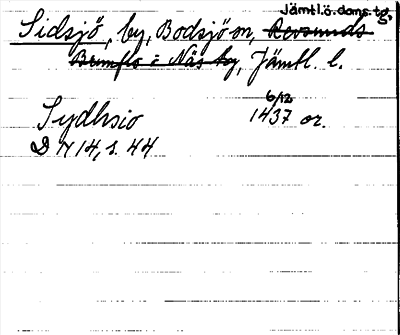 Jämtl.ö.doms.tg,
Sidsjö, by, Bodsjö sn, Revsunds
Brunflo o Näs tg, Jämtl. l.
6/12
Sydhsio 1437 or.
D N 14, s. 44